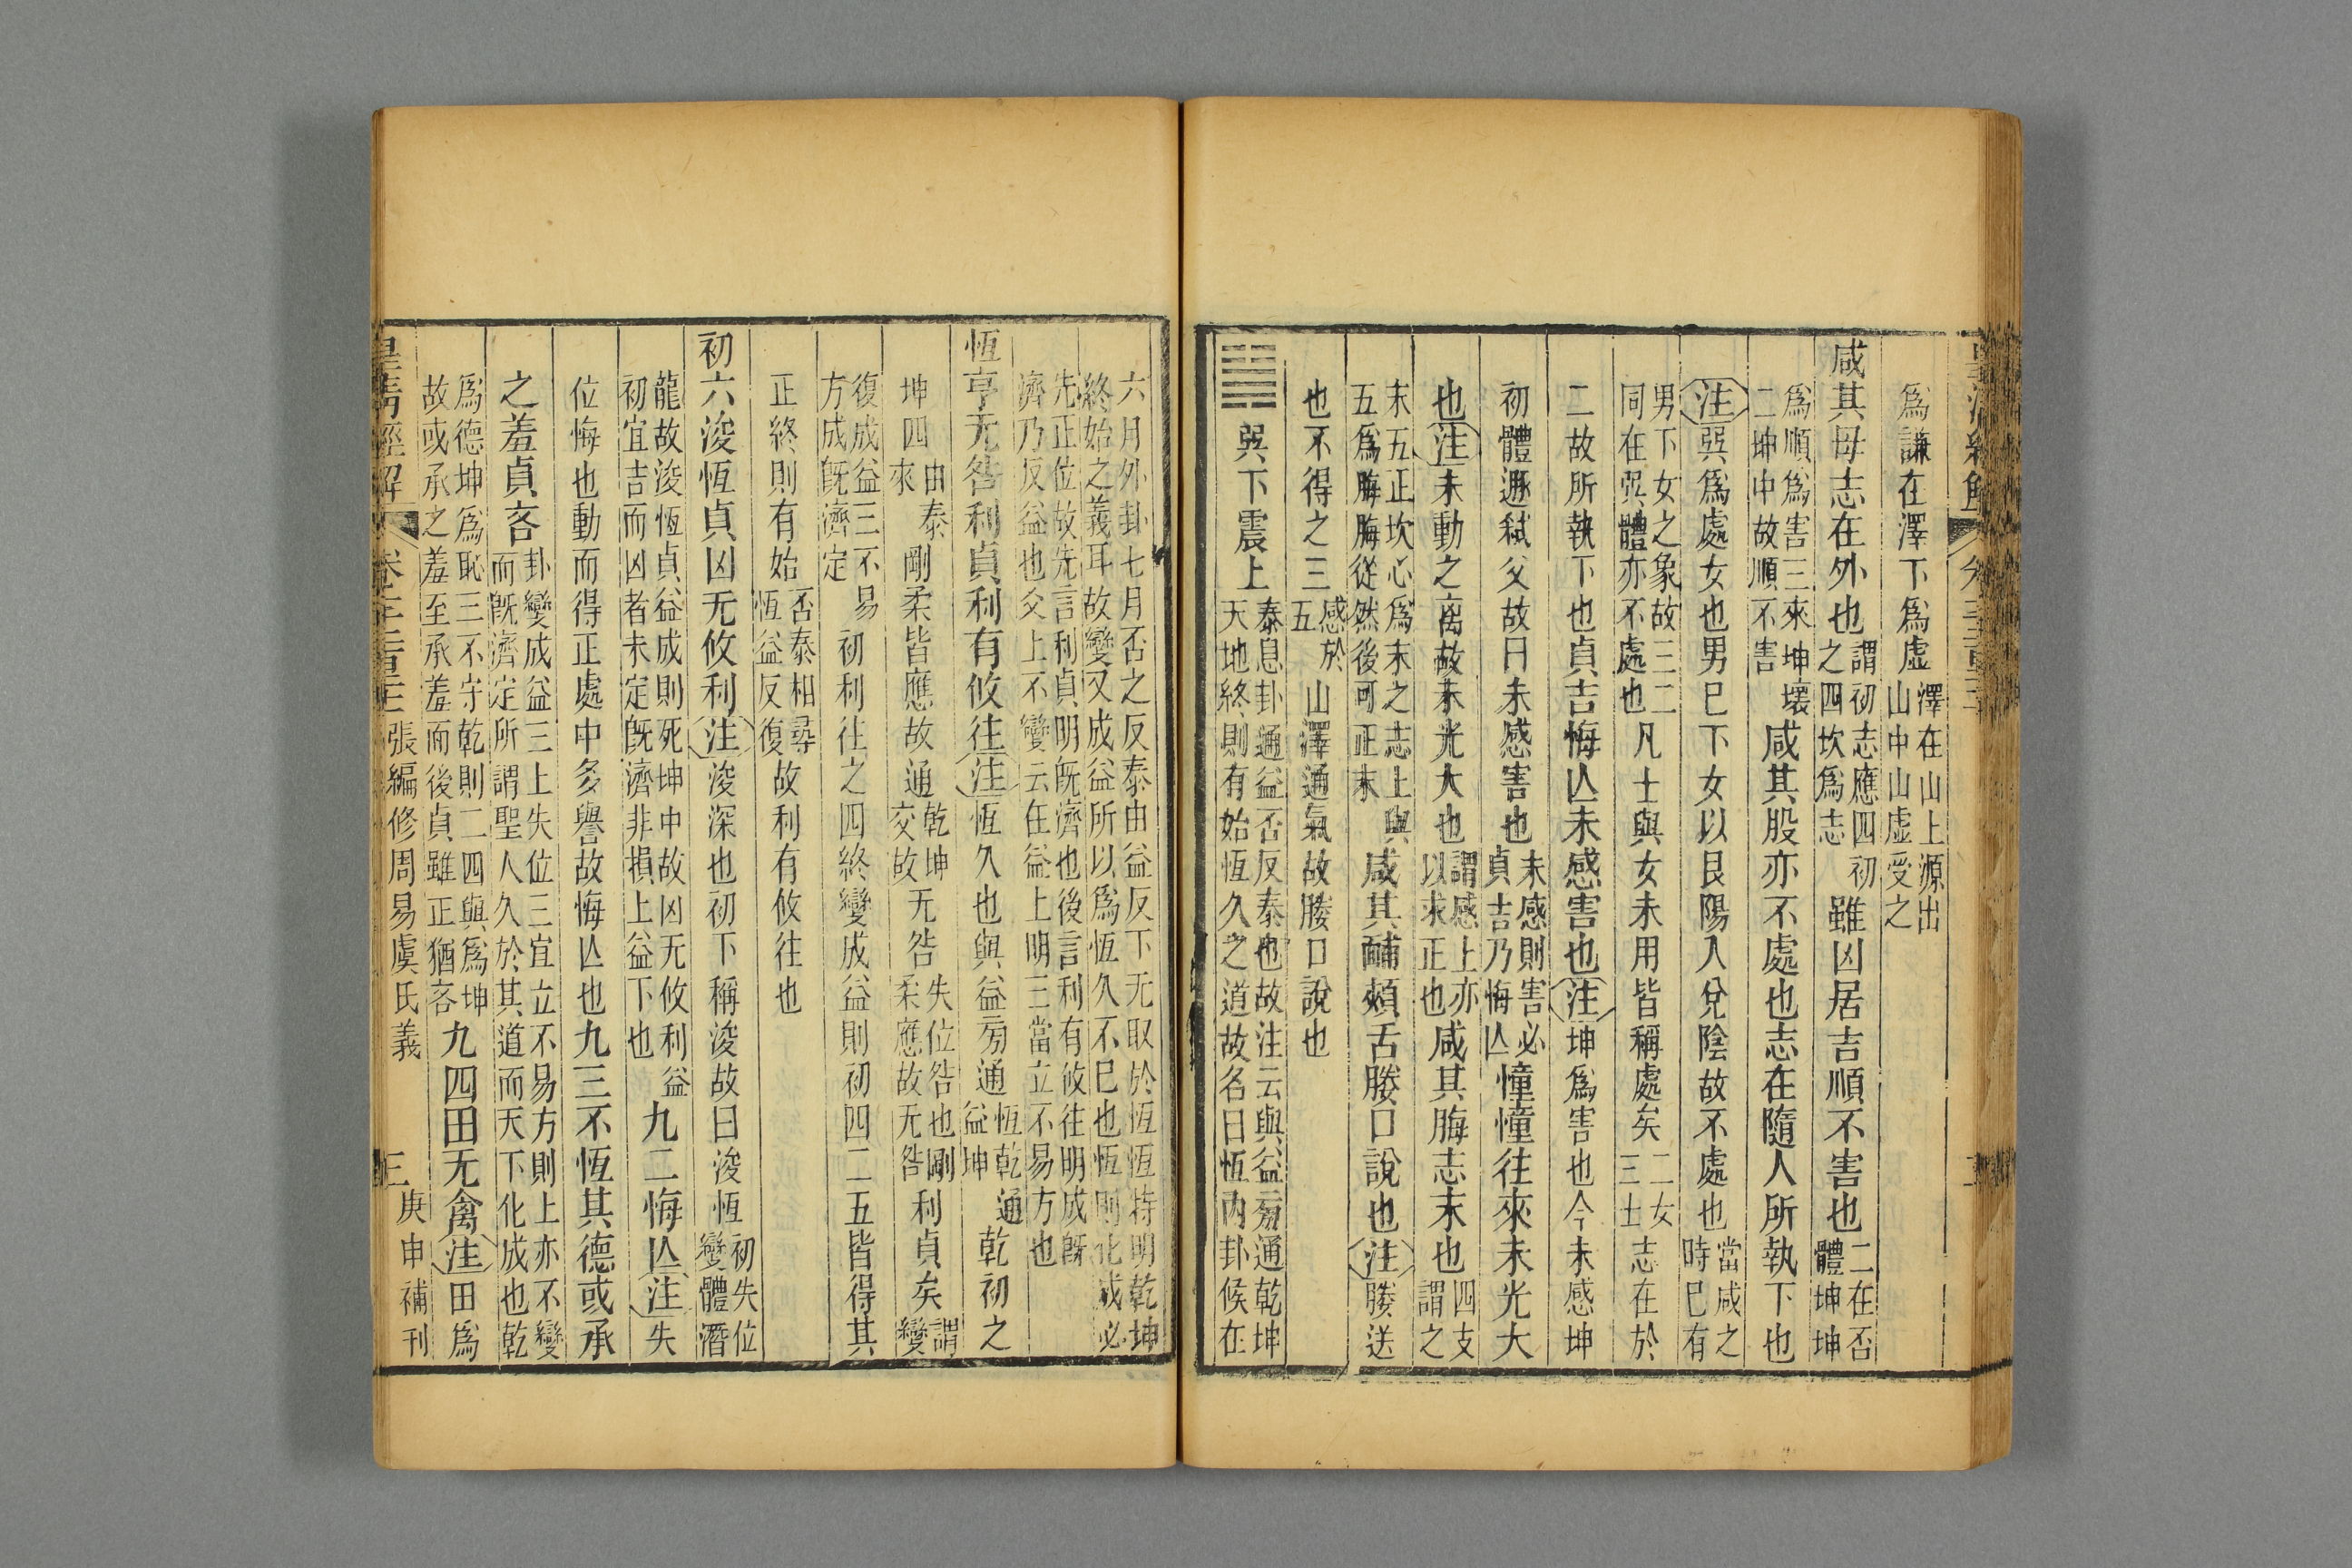 爲謙在澤下爲虛澤在山上源出山中山虛受之
咸其母志在外也謂初志應四初之四坎爲志雖凶居吉順不害也二在否體坤坤
爲順爲害三來坤壞二坤中故順不害咸其股亦不處也志在隨人所執下也
注巽爲處女也男巳下女以艮陽入兌陰故不處也當咸之時巳有
男下女之象故三二同在巽體亦不處也凡士與女未用皆稱處矣二女三士志在於
二故所執下也貞吉悔亾未感害也注坤爲害也今未感坤
初體遯弒父故曰未感害也未感則害必貞吉乃悔亾憧憧往來未光大
也注未動之离故未光大也謂感上亦以求正也咸其脢志末也四支謂之
末五正坎心爲末之志上與五爲脢脢從然後可正末咸其輔頰舌媵口說也注媵送
也不得之三感於五山澤通氣故媵口說也
巽下震上泰息卦通益否反泰也故注云與益旁通乾坤天地終則有始恆久之道故名曰恆內卦候在
六月外卦七月否之反泰由益反下无取於恆恆特明乾坤
終始之義耳故變又成益所以爲恆久不巳也恆則化成必
先正位故先言利貞明旣濟也後言利有攸往明成旣
濟乃反益也爻上不變云在益上明三當立不易方也
恆亨无咎利貞利有攸往注恆久也與益旁通恆乾益坤通乾初之
坤四由泰來剛柔皆應故通乾坤交故无咎失位咎也剛柔應故无咎利貞矣謂變
復成益三不易方成旣濟定初利往之四終變成益則初四二五皆得其
正終則有始否泰相尋恆益反復故利有攸往也
初六浚恆貞凶无攸利注浚深也初下稱浚故曰浚恆初失位變體潛
龍故浚恆貞益成則死坤中故凶无攸利益初宜吉而凶者未定旣濟非損上益下也九二悔亾注失
位悔也動而得正處中多譽故悔亾也九三不恆其德或承
之羞貞吝卦變成益三上失位三宜立不易方則上亦不變而旣濟定所謂聖人久於其道而天下化成也乾
爲德坤爲恥三不守乾則二四與爲坤故或承之羞至承羞而後貞雖正猶吝九四田无禽注田爲
皇淸經解 張編修周易虞氏義 三 庚申補刊